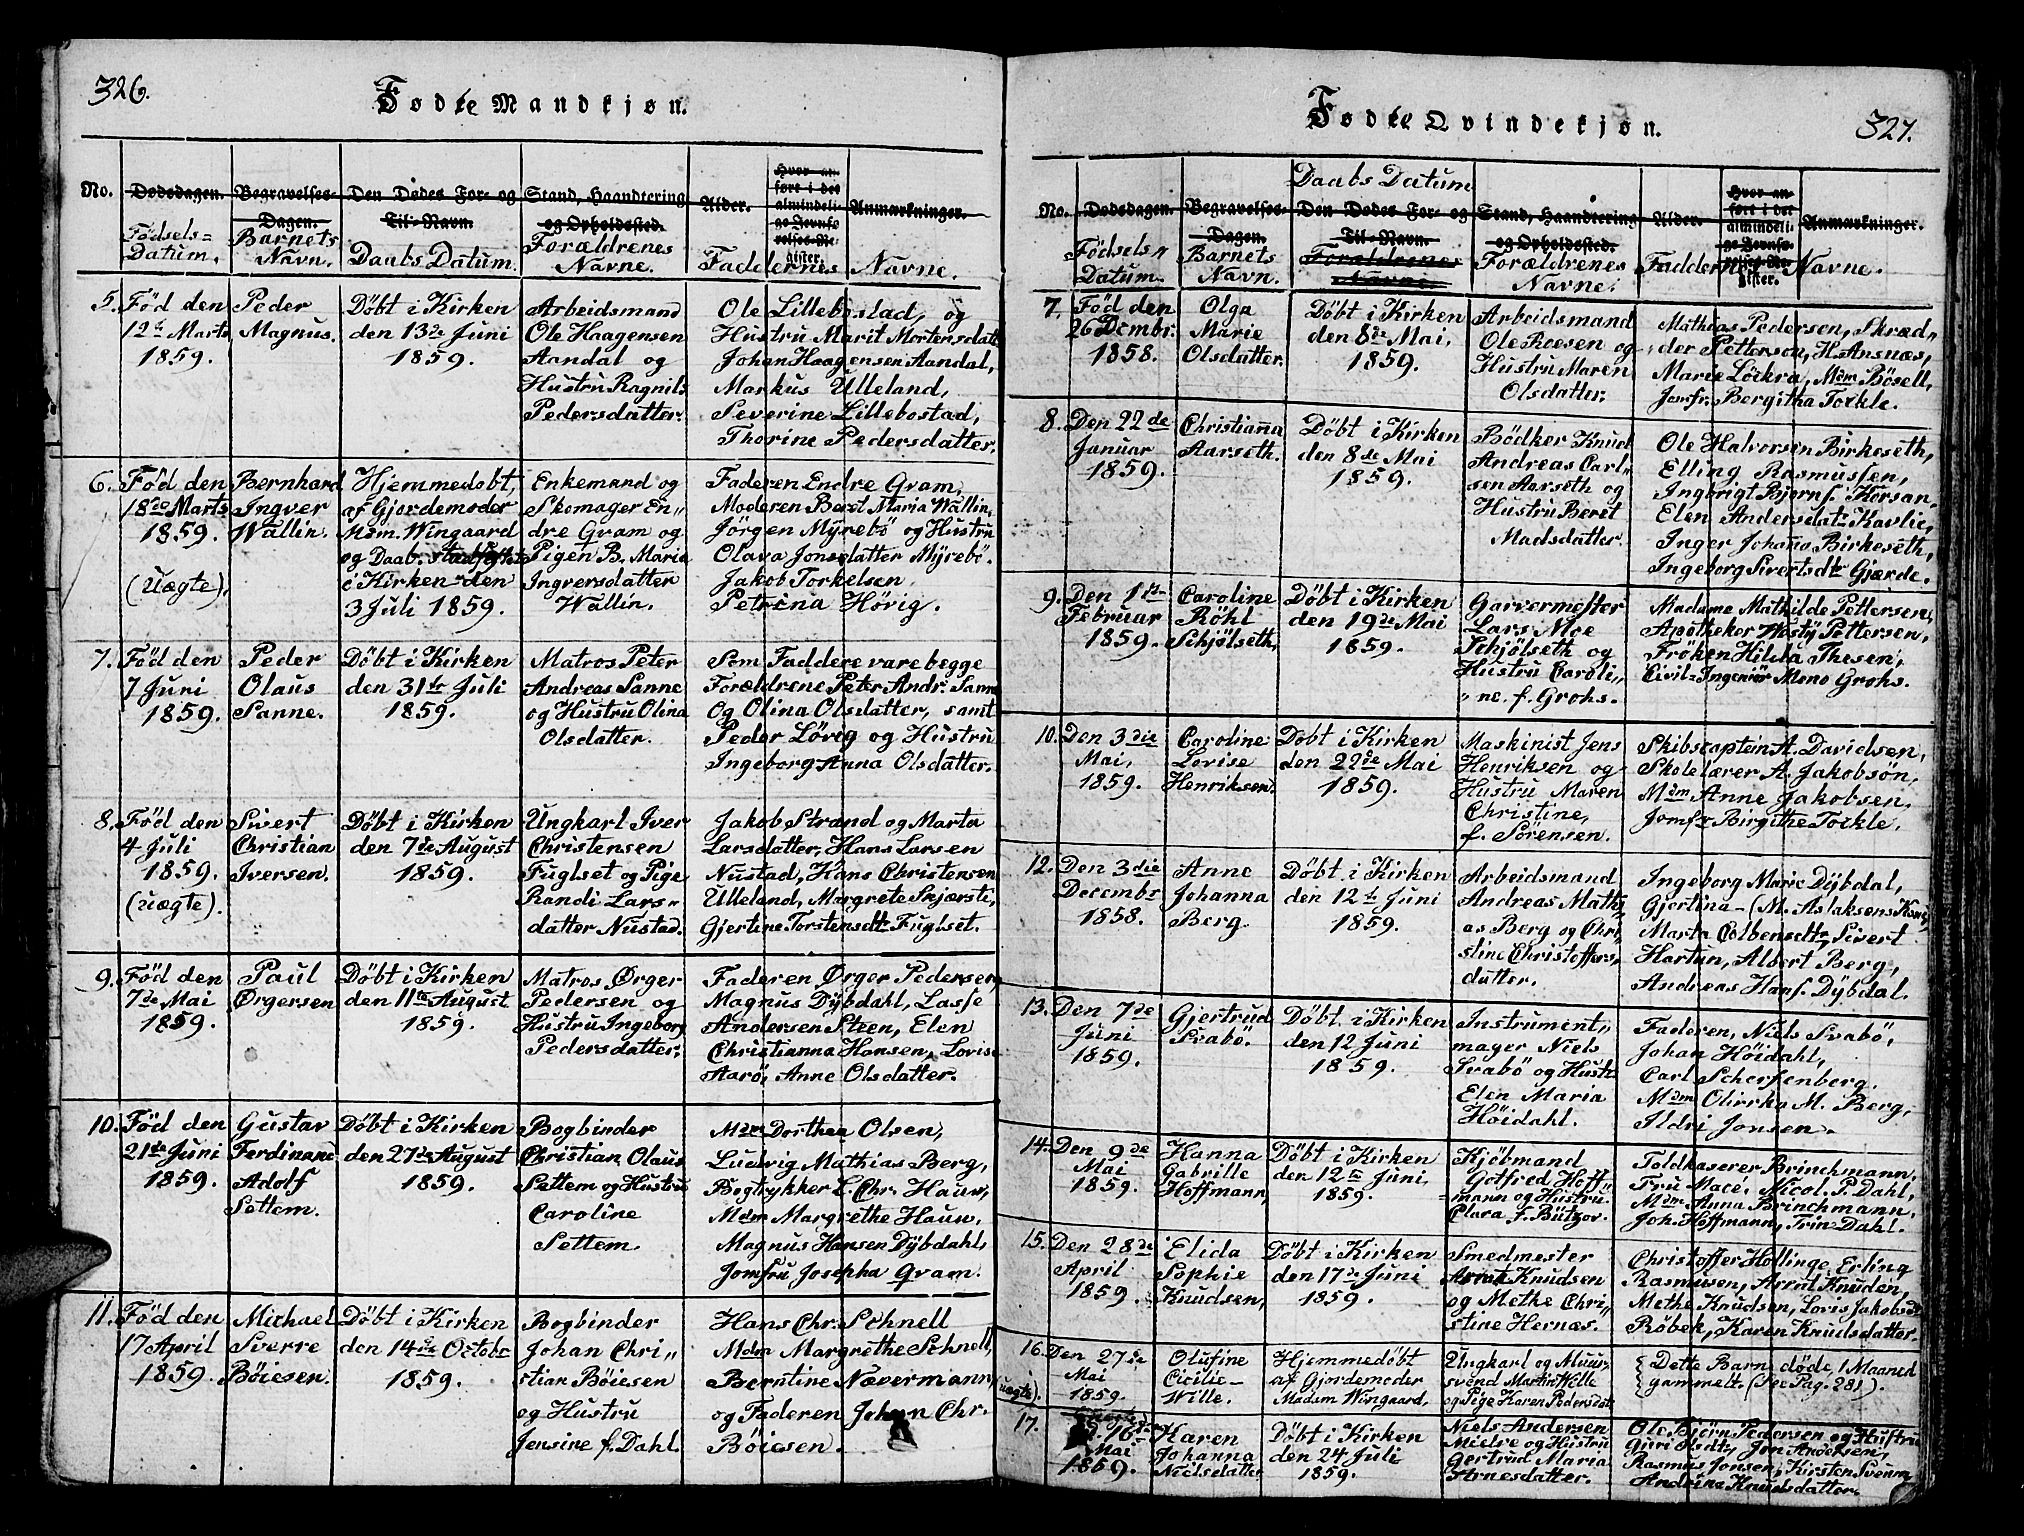 326.
Fødte Mandkjøn.
No.
Dødsdagen.
Fødsels=
Datum.
Begravelses-
Dagen.
Barnets
Navn.
Den Dødes For- og
Til-Navn.
Daabs Datum.
Stand, Haandtering
og Opholdssted.
Forældrenes
Navne.
Alder.
Hvor an-
ført i det
almindeli-
ge Jevnfø-
relses-Re-
gister.
Anmærkninger.
Faddernes Navne.
5.
Fød den
12te Marts
1859.
Peder
Magnus.
Døbt i Kirken
den 13de Juni
1859.
Arbeidsmand
Ole Haagensen
Aandal og
Hustru Ragnils
Pedersdatter.
Ole Lillebostad, og
Hustru Marit Mortensdatt
Johan Haagensen Aandal,
Markus Ulleland,
Severine Lillebostad,
Thorine Pedersdatter.
6.
Fød den
18de Marts
1859.
(uægte).
Bernhard
Ingver
Wallin.
Hjemmedøbt,
af Gjordemoder
Mdm. Wingaard
og Daab. stadfæstet
i Kirken den
3 Juli 1859.
Enkemand og
Skomager En„
dre Gram og
Pigen B. Maria
Ingversdatter
Wallin.
Faderen Endre Gram,
Moderen Beret Maria Wallin,
Jörgen Myrebö og Hustru
Olava Jonsdatter Myrebö.
Jakob Torkelsen.
Petrina Hörig.
7.
Fød den
7 Juni
1859.
Peder
Olaus
Sanne.
Døbt i Kirken
den 31te Juli
1859.
Matros Peter
Andreas Sanne
og Hustru Olina
Olsdatter.
Som Faddere vare begge
Forældrene Peter Andr. Sanne
Og Olina Olsdatter, samt
Peder Lövig og Hustru
Ingeborg Anna Olsdatter.
8.
Fød den
4 Juli
1859.
(uægte).
Sivert
Christian
Iversen.
Døbt i Kirken
den 7de August
1859.
Ungkarl Iver
Christensen
Fuglset og Pige
Randi Lars=
datter Nustad.
Jakob Strand og Marta
Larsdatter, Hans Larsen
Nustad, Hans Christensen
Ulleland, Margrete Skjærsti,
Gjertine Torstensdtr Fuglset.
9.
Fød den
7de Mai
1859.
Paul
Ørgersen
Døbt i Kirken
den 11te August
1859.
Matros Ørger
Pedersen og
Hustru Ingeborg
Pedersdatter.
Faderen Ørger Pedersen,
Magnus Dÿbdahl, Lasse
Andersen Steen, Elen
Christianna Hansen, Lovise
Aarö, Anne Olsdatter.
10.
Fød den
21de Juni
1859.
Gustav
Ferdinand
Adolf
Settem.
Døbt i Kirken
den 27de August
1859.
Bogbinder
Christian Olaus
Settem og Hustru
Caroline
Settem.
Mdm Dorthea Olsen,
Ludvig Mathias Berg,
Bogtrykker L. Chr. Haun,
Mdm Margrethe Haun,
Magnus Hansen Dÿbdahl,
Jomfru Josepha Qvam.
11.
Fød den
17 April
1859.
Michael
Sverre
Böiesen.
Døbt i Kirken
den 14de Octobr
1859.
Bogbinder
Johan Chri„
stian Böiesen
og Hustru
Jensine f. Dahl.
Hans Chr. Schnell
Mdm Margrethe Schnell,
Berntine Nævermann,
og Faderen Johan Chr.
Böiesen.
Fødte Qvindekjøn.
327.
No.
Dødsdagen.
Fødsels„
Datum.
Begravelses-
Dagen.
Barnets
Navn.
Daabs Datum
Den Dødes For- og
Til-Navn.
Forældrenes
Navne.
Stand, Haandtering
og Opholdssted.
Forældrenes
Navne.
Alder.
Hvor an-
ført i det
almindeli-
ge Jevnfø-
relses-Re-
gister.
Anmærkninger.
Faddernes Navne.
7.
Fød den
26 Decmbr.
1858.
Olga
Marie
Olsdatter.
Døbt i Kirken
den 8de Mai,
1859.
Arbeidsmand
Ole Roesen og
Hustru Maren
Olsdatter.
Mathias Pedersen, Skræd„
„der Petterson, H. Ansnæs,
Marie Löckra, Mdm Bösell,
Jomfr. Bergitha Tockle.
8.
Den 22de
Januar
1859.
Christianna
Aarseth.
Døbt i Kirken
den 8de Mai
1859.
Bödker Knud
Andreas Carl=
sen Aarseth og
Hustru Beret
Madsdatter.
Ole Halvorsen Birkeseth,
Elling Rasmussen,
Ingbrigt Bjørns. Korsan,
Elen Andersdatr Kavlie,
Inger Johanna Birkeseth,
Ingeborg Sivertsdtr Gjærde.
9.
Den 1te
Februar
1859.
Caroline
Röhl
Schjölseth.
Døbt i Kirken
den 19de Mai
1859.
Garvermester
Lars Moe
Schjölseth og
Hustru Caroli„
„ne. f. Grohs.
Madame Mathilde Pettersen,
Apotheker Pettersen,
Fröken Hilda Thesen,
Civil=Ingeniör Meno Grohs.
10.
Den 3die
Mai,
1859.
Caroline
Lovise
Henriksen.
Døbt i Kirken
den 22de Mai
1859.
Maskinist Jens
Henriksen og
Hustru Maren
Christine,
f. Sörensen.
Skibscaptein A. Davidsen,
Skolelærer A. Jakobsön,
Mdm Anne Jakobsen,
Jomfr Birgithe Tockle.
12.
Den 3die
Decembr
1858.
Anne
Johanna
Berg.
Døbt i Kirken
den 12te Juni
1859.
Arbeidsmand
Andreas Mathi„
as Berg og Chri„
stine Christoffers„
datter.
Ingeborg Marie Dÿbdal,
Gjertina (M. Aslaksens Kone)
Marta Colbensdtr, Sivert
Hartun, Albert Berg,
Andreas Hans. Dÿbdal.
13.
Den 7de
Juni
1859.
Gjertrud
Svabö.
Døbt i Kirken
den 12 Juni
1859.
Instrument„
mager Niels
Svabö og Hustr.
Elen Maria
Höidahl.
Faderen, Niels Svabö,
Johan Höidahl,
Carl Scherfenberg.
Mdm Olirrka M. Berg,
Ildri Jonsen.
14.
Den 9de
Mai
1859.
Hanna
Gabrille
Hoffmann,
Døbt i Kirken
den 12te Juni,
1859.
Kjöbmand
Gotfred Hoff„
mann og Hustru
Clara f. Bützov.
Toldkaserer Brinchmann.
Fru Macé, Nicol. P. Dahl,
Mdm Anna Brinchmann,
Joh. Hoffmann, Trin Dahl.
15.
Den 28de
April
1859.
Elida
Sophie
Knudsen,
Døbt i Kirken
den 17de Juni
1859.
Smedmester
Arnt Knudsen
og Methe Chri„
stine Hernæs.
Christoffer Hollinge, Erling
Rasmusen, Asrul Knuden,
Methe Knudsen, Lovis Jakobsdt
Röbek, Karen Knudsdatter.
16.
(uægte).
Den 27de
Mai
1859.
Olufine
Cicilie
Wille.
Hjemmedøbt
af Gjordemoder
Madam Wingaard,
Ungkarl og Muur„
svend Martin Wille
og Pige Karen Pedersdatr
Dette Barn døde, 1 Maaned
gammelt. (See Pag. 281).
17.
16de
Mai
1859.
Karen
Johanna
Nielsdatter
Døbt i Kirken
den 24 Juli
1859.
Niels Andersen
Mielve og Hustru
Gertrud Maria
Arnesdatter.
Ole Bjørn Pedersen og Hustru
Guri Olsdtr, Jon Andersen,
Rasmus Jonsen, Kirsten Sveum,
Andrine Knudsdatter.